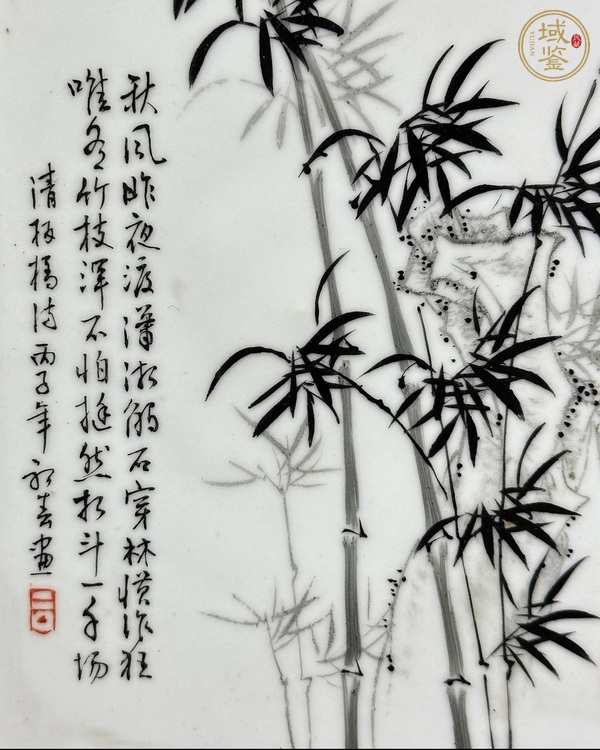 秋风昨夜渡潇湘触石穿林惯作狂
唯有竹枝浑不怕挺然相斗一千场
清板桥诗丙子年初春画
域鉴